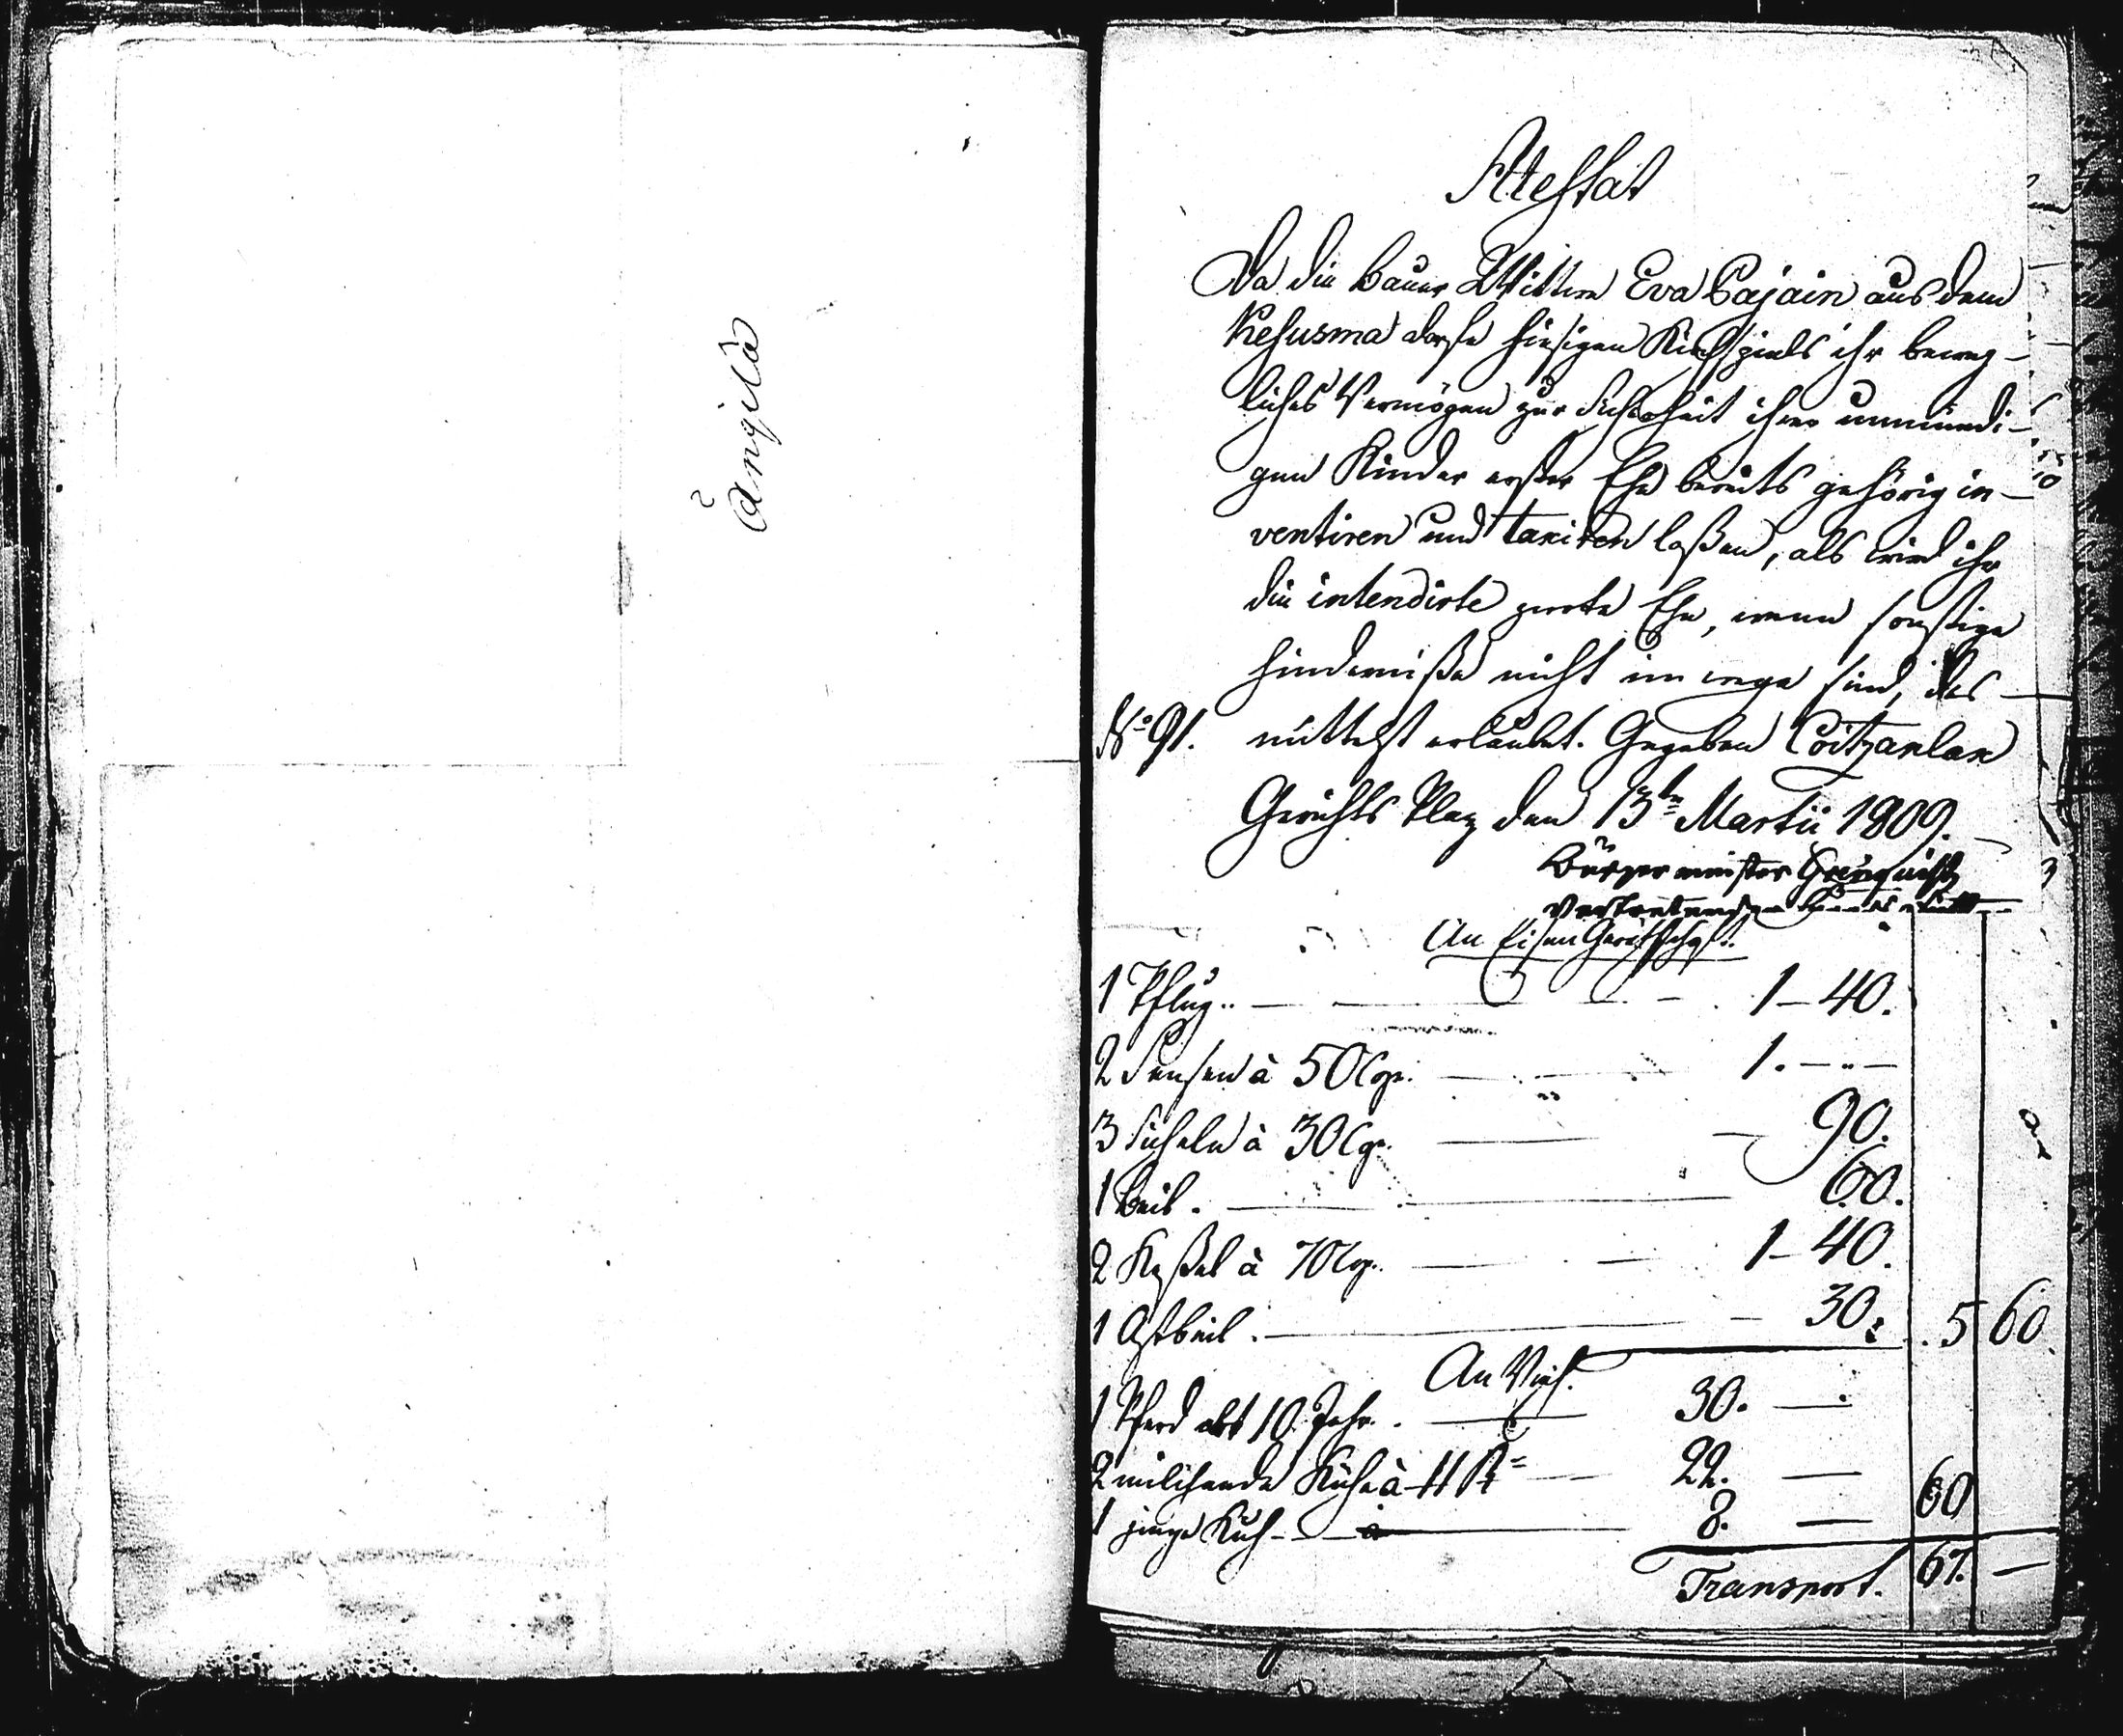 Ängilä
Attestat
Da die Bauer Wittwe Eva Pajain aus dem
Kesusma dorfe hiesigen Kirchspiels ihr beweg-
liches Vermögen zur Sicherheit ihrer unmündi-
gen Kinder erster Ehe bereits gehörig in-
ventiren und taxiren laßen, als wird ihr
die intendirte zwote Ehe, wenn sonstige
hinderniße nicht im wege sind, des-
No 91. mittelst erlaubet. Gegeben
Gerichts Plaz den 13ten Martii 1809.
Bürgermeister
Vertretender
An Eisen Geräthschaft.
1 Pflug.. — 1-40.
2 Sensen à 50 Cop. — 1. -..-
3 Sicheln à 30 Cop. — 90.
1 Beil. — 60.
2 Keßel à 70 Cop. — 1-40.
1 Astbeil. — 30. 5 60.
An Vieh.
1 Pferd alt 10 Jahr. — 30. —
2 milchende Kühe à 11 R — 22. —
1 junge Kuh - 8. — 60
Transport. 67. —